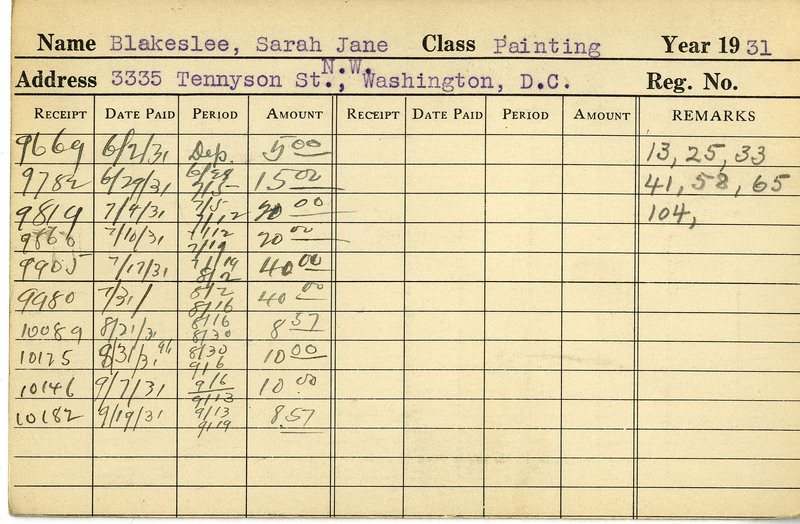 Name Blakeslee, Sarah Jane Class Painting Year 1931
Address 3335 Tennyson St., N.W. Washington, D.C. Reg. No.
RECEIPT DATE PAID PERIOD AMOUNT RECEIPT DATE PAID PERIOD AMOUNT REMARKS
9669 6/2/31 Dep. 5 00 13, 25, 33
9782 6/29/31 6/28 7/5 15 00 41, 58, 65
9819 7/4/31 7/5 7/12 20 00 104,
9860 7/10/31 7/12 7/19 20 00
9905 7/17/31 7/19 8/2 40 00
9980 7/31/ 8/2 8/16 40 00
10089 8/21/31 8/16 8/30 8 57
10125 8/31/31 8/30 9/6 10 00
10146 9/7/31 9/6 9/13 10 00
10182 9/19/31 9/13 9/19 8.57